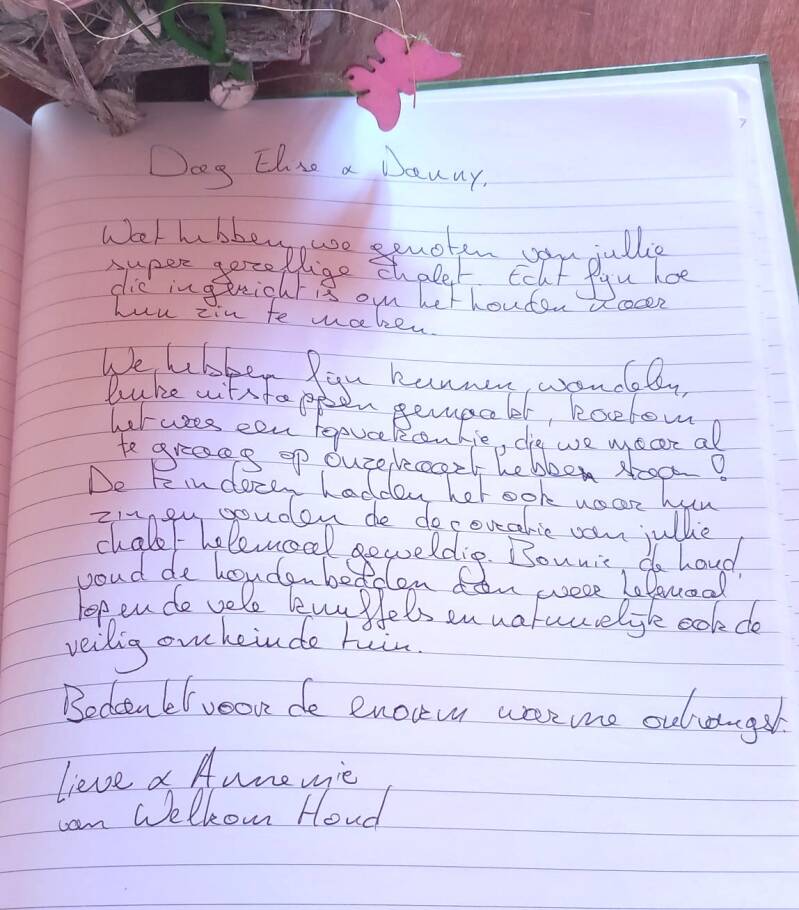 Dag Elise & Danny,
Wat hebben we genoten van jullie
super gezellige chalet. Echt fijn hoe
die ingericht is om het honden naar
hun zin te maken.
We hebben fijn kunnen wandelen,
leuke uitstappen gemaakt, kortom
het was een topvakantie, die we maar al
te graag op onze kaart hebben staan!
De kinderen hadden het ook naar hun
zin en vonden de decoratie van jullie
chalet helemaal geweldig. Bonnie, de hond,
vond de hondenbedden dan weer helemaal
top en de vele knuffels en natuurlijk ook de
veilig omheinde tuin.
Bedankt voor de enorm warme ontvangst.
Lieve & Annemie
van Welkom Hond